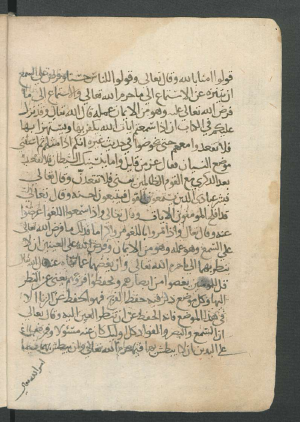 قولوا امنا بالله وقال تعالى وقولوا للناس حسنا وفرض على السمع
ان يتنزه عن الاستماع الى ما حرم الله تعالى والاستماع الى ما
فرض الله تعالى عليه وهو من الايمان عمله قال الله تعالى وقد نزل
عليكم في الكتاب ان اذا سمعتم ايات الله يكفر بها ويستهزا بها
فلا تقعدوا معهم حتى يخوضوا في حديث غيره ثم استثنى
موضع النسيان فقال عز من قائل واما ينسينك الشيطان فلا تقعد
بعد الذكرى مع القوم الظالمين
عبادي الذين يستمعون القول فيتبعون احسنه وقال تعالى
قد افلح المؤمنون وقال تعالى واذا سمعوا اللغو اعرضوا
عنه وقال تعالى واذا مروا باللغو مروا كراما فذلك ما فرض الله
على السمع وهو عمله وهو من الايمان وفرض على العينين ان لا
ينظر بهما الى ما حرم الله تعالى وان يغضهما
قل للمؤمنين يغضوا من ابصارهم ويحفظوا فروجهم
وكل موضع ذكر فيه حفظ الفرج فهو الحفظ عن الزنا الا
في هذا الموضع فانه الحفظ عن ان ينظر اليه وقال تعالى
ان السمع والبصر والفؤاد كل اولئك كان عنه مسئولا وفرض الله
على اليدين ان لا يبطش بهما فيما حرم الله تعالى